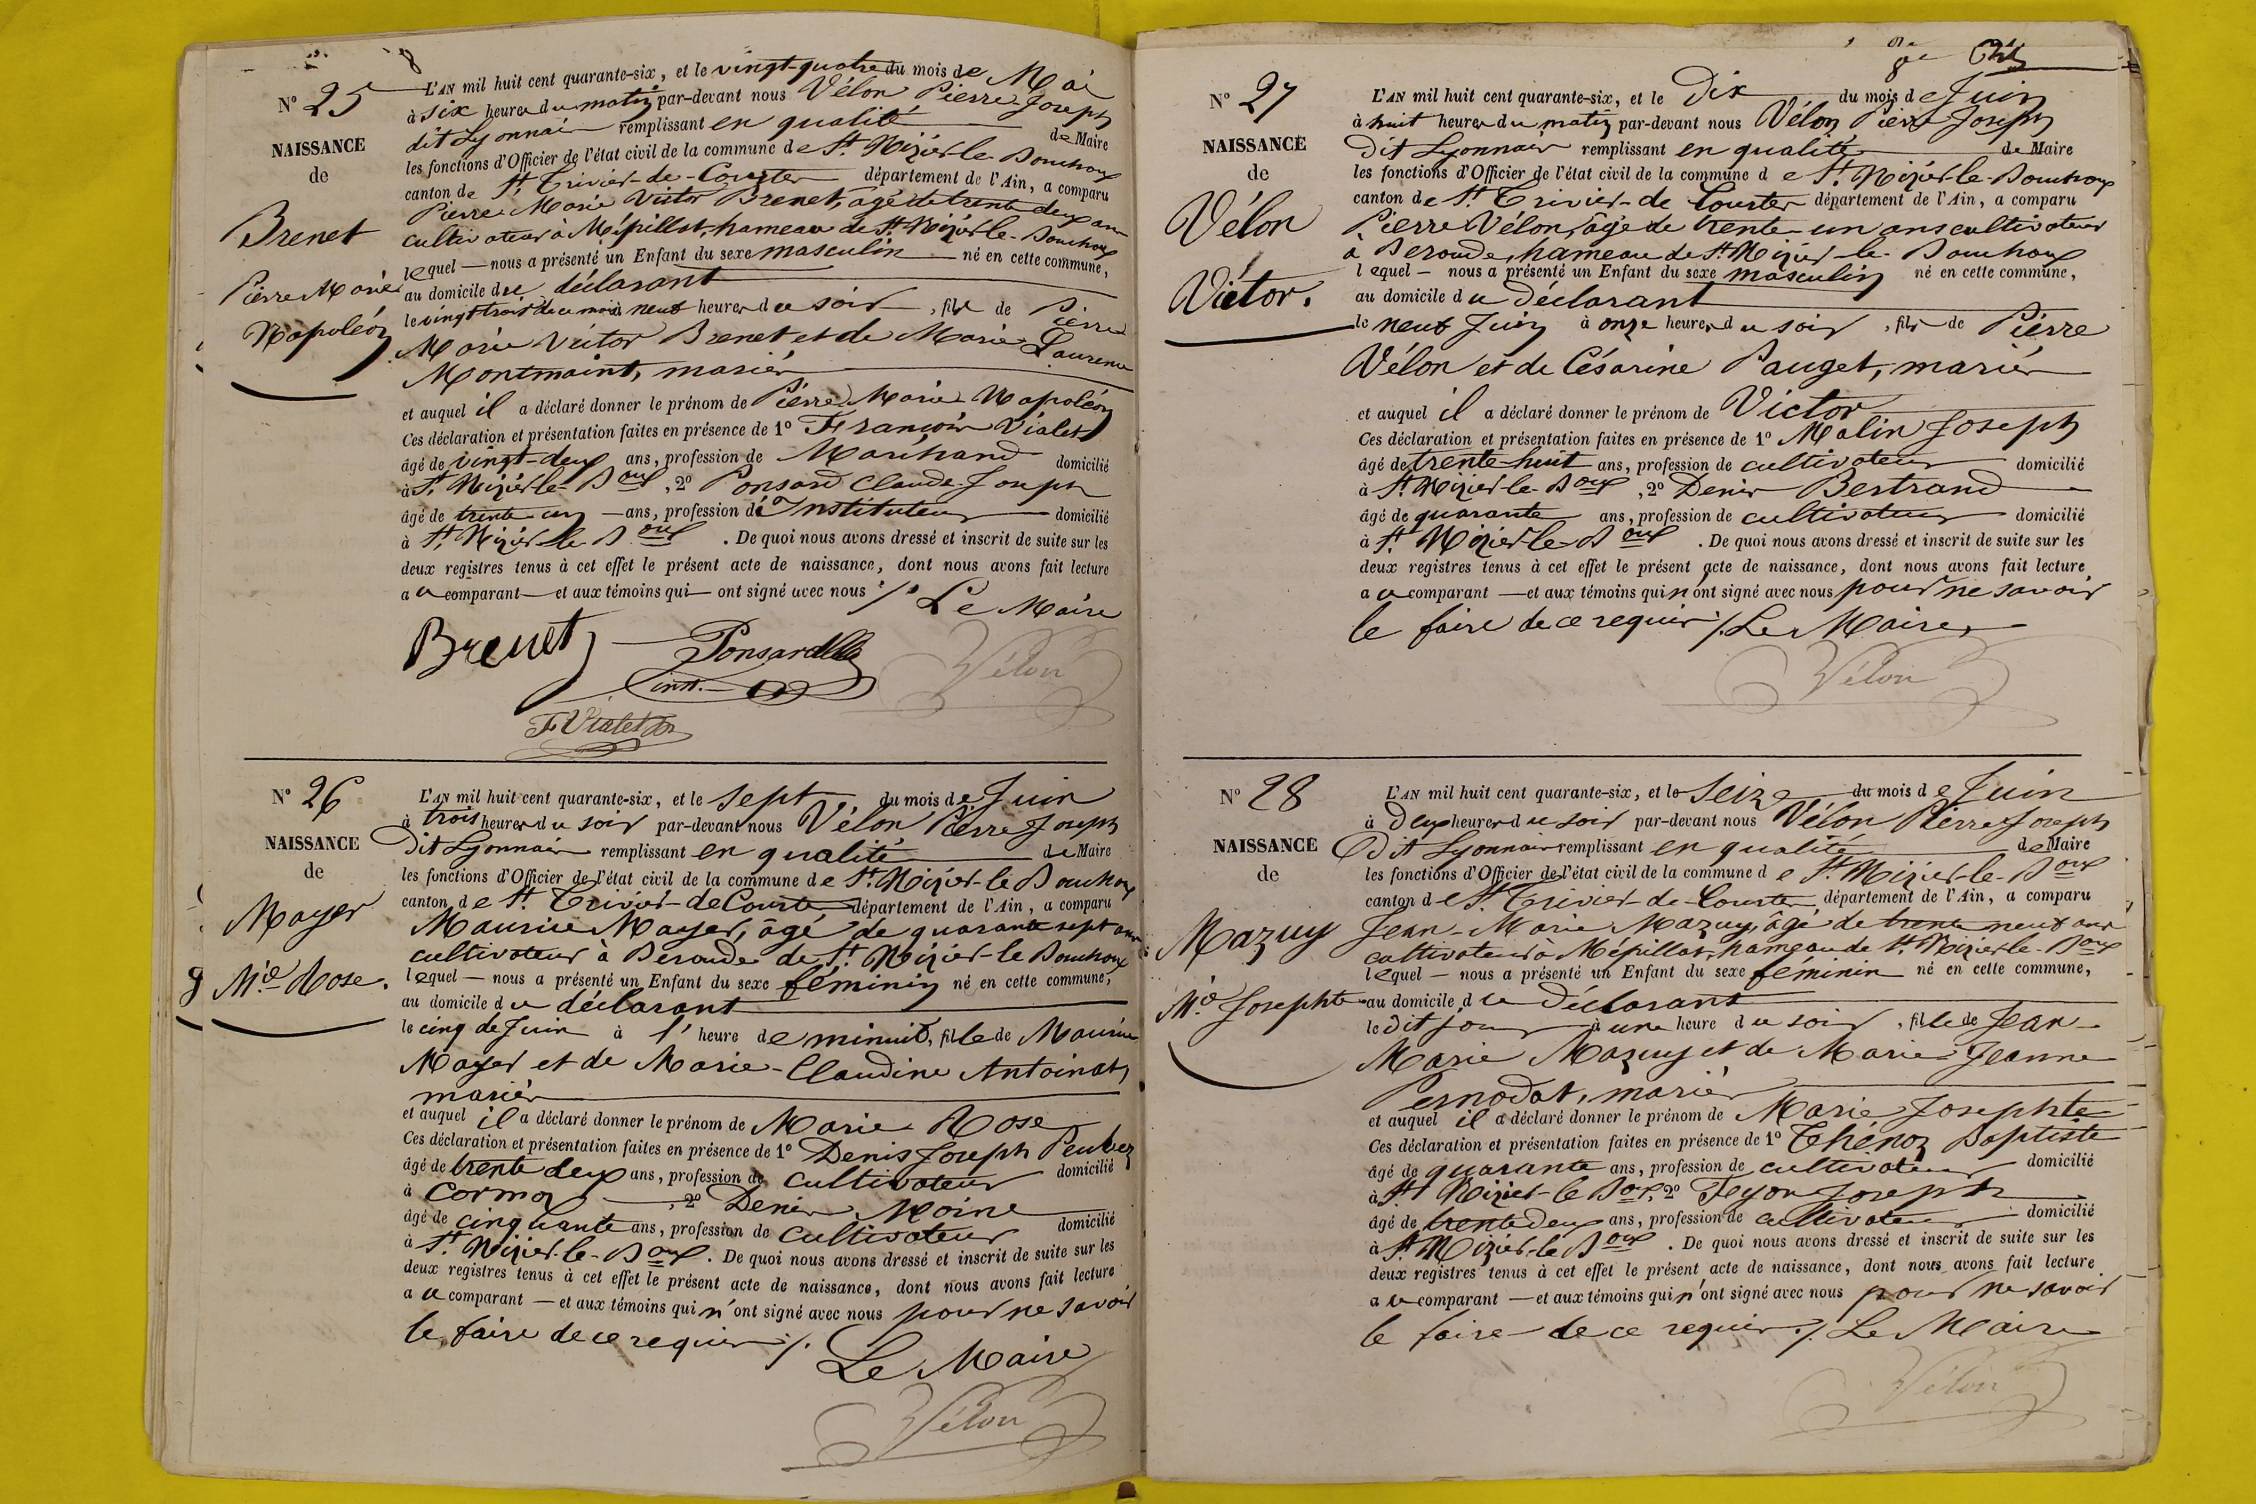 N° 25
NAISSANCE
de
Brenet
Pierre Marie
Napoléon
L'AN mil huit cent quarante-six, et le vingt-quatre du mois de Mai
à six heures du matin par-devant nous Vélon Pierre Joseph
dit Lyonnais remplissant en qualité de Maire
les fonctions d'Officier de l'état civil de la commune de St. Nizier-le-Bouchoux
canton de St. Trivier-de-Courtes département de l'Ain, a comparu
Pierre Marie Victor Brenet, âgé de trente deux ans
cultivateur à Mépillat, hameau de St. Nizier-le-Bouchoux
lequel — nous a présenté un Enfant du sexe masculin né en cette commune,
au domicile du déclarant
le vingt trois de ce mois à neuf heures du soir, fils de Pierre
Marie Victor Brenet et de Marie Laurence
Montmaint, mariés
et auquel il a déclaré donner le prénom de Pierre Marie Napoléon
Ces déclaration et présentation faites en présence de 1° François Vialet
âgé de vingt-deux ans, profession de Marchand domicilié
à St. Nizier-le-Boux, 2° Ponsard Claude Joseph
âgé de trente un — ans, profession d'Instituteur domicilié
à St. Nizier-le-Boux. De quoi nous avons dressé et inscrit de suite sur les
deux registres tenus à cet effet le présent acte de naissance, dont nous avons fait lecture
au comparant — et aux témoins qui — ont signé avec nous ./. Le Maire
Brenet Ponsard
inst. Vélon
F Vialet
N° 26
NAISSANCE
de
Mayer
Mie Rose.
L'AN mil huit cent quarante-six, et le sept du mois de Juin
à trois heures du soir par-devant nous Vélon Pierre Joseph
Dit Lyonnais remplissant en qualité de Maire
les fonctions d'Officier de l'état civil de la commune de St. Nizier-le-Bouchoux
canton de St. Trivier-de-Courtes département de l'Ain, a comparu
Maurice Mayer, âgé de quarante sept ans
cultivateur à Beroude de St. Nizier-le-Bouchoux
lequel — nous a présenté un Enfant du sexe féminin né en cette commune,
au domicile du déclarant
le cinq de Juin à l' heure de minuit, fille de Maurice
Mayer et de Marie-Claudine Antoinat,
mariés
et auquel il a déclaré donner le prénom de Marie Rose
Ces déclaration et présentation faites en présence de 1° Denis Joseph
âgé de trente deux ans, profession de cultivateur domicilié
à Cormoz, 2° Denis Moine
âgé de cinquante ans, profession de cultivateur domicilié
à St. Nizier-le-Boux. De quoi nous avons dressé et inscrit de suite sur les
deux registres tenus à cet effet le présent acte de naissance, dont nous avons fait lecture
au comparant — et aux témoins qui n'ont signé avec nous pour ne savoir
le faire de ce requis ./.
Le Maire
Vélon
N° 27
NAISSANCE
de
Vélon
Victor.
L'AN mil huit cent quarante-six, et le Dix du mois de Juin
à huit heures du matin par-devant nous Vélon Pierre Joseph
Dit Lyonnais remplissant en qualité de Maire
les fonctions d'Officier de l'état civil de la commune de St. Nizier-le-Bouchoux
canton de St. Trivier-de-Courtes département de l'Ain, a comparu
Pierre Vélon, âgé de trente-un ans cultivateur
à Beroude, hameau de St. Nizier-le-Bouchoux
lequel — nous a présenté un Enfant du sexe masculin né en cette commune,
au domicile du Déclarant
le neuf Juin à onze heures du soir, fils de Pierre
Vélon et de Césarine Pauget, mariés
et auquel il a déclaré donner le prénom de Victor
Ces déclaration et présentation faites en présence de 1° Malin Joseph
âgé de trente-huit ans, profession de cultivateur domicilié
à St. Nizier-le-Boux, 2° Denis Bertrand
âgé de quarante ans, profession de cultivateur domicilié
à St. Nizier-le-Boux. De quoi nous avons dressé et inscrit de suite sur les
deux registres tenus à cet effet le présent acte de naissance, dont nous avons fait lecture
au comparant — et aux témoins qui n'ont signé avec nous pour ne savoir
le faire de ce requis ./. Le Maire,
Vélon
N° 28
NAISSANCE
de
Mazuy
Mie Josephte
L'AN mil huit cent quarante-six, et le Seize du mois de Juin
à Deux heures du soir par-devant nous Vélon Pierre Joseph
Dit Lyonnais remplissant en qualité de Maire
les fonctions d'Officier de l'état civil de la commune de St. Nizier-le-Boux
canton de St. Trivier-de-Courtes département de l'Ain, a comparu
Jean-Marie Mazuy, âgé de trente neuf ans
cultivateur à Mépillat, hameau de St. Nizier-le-Boux
lequel — nous a présenté un Enfant du sexe féminin né en cette commune,
au domicile du Déclarant
le dit jour à une heure du soir, fille de Jean-
Marie Mazuy et de Marie Jeanne
Pernodat, mariés
et auquel il a déclaré donner le prénom de Marie Josephte
Ces déclaration et présentation faites en présence de 1° Thénoz Baptiste
âgé de quarante ans, profession de cultivateur domicilié
à St. Nizier-le-Boux, 2° Feyon Joseph
âgé de trente deux ans, profession de cultivateur domicilié
à St. Nizier-le-Boux. De quoi nous avons dressé et inscrit de suite sur les
deux registres tenus à cet effet le présent acte de naissance, dont nous avons fait lecture
au comparant — et aux témoins qui n'ont signé avec nous pour ne savoir
le faire de ce requis ./. Le Maire
Vélon